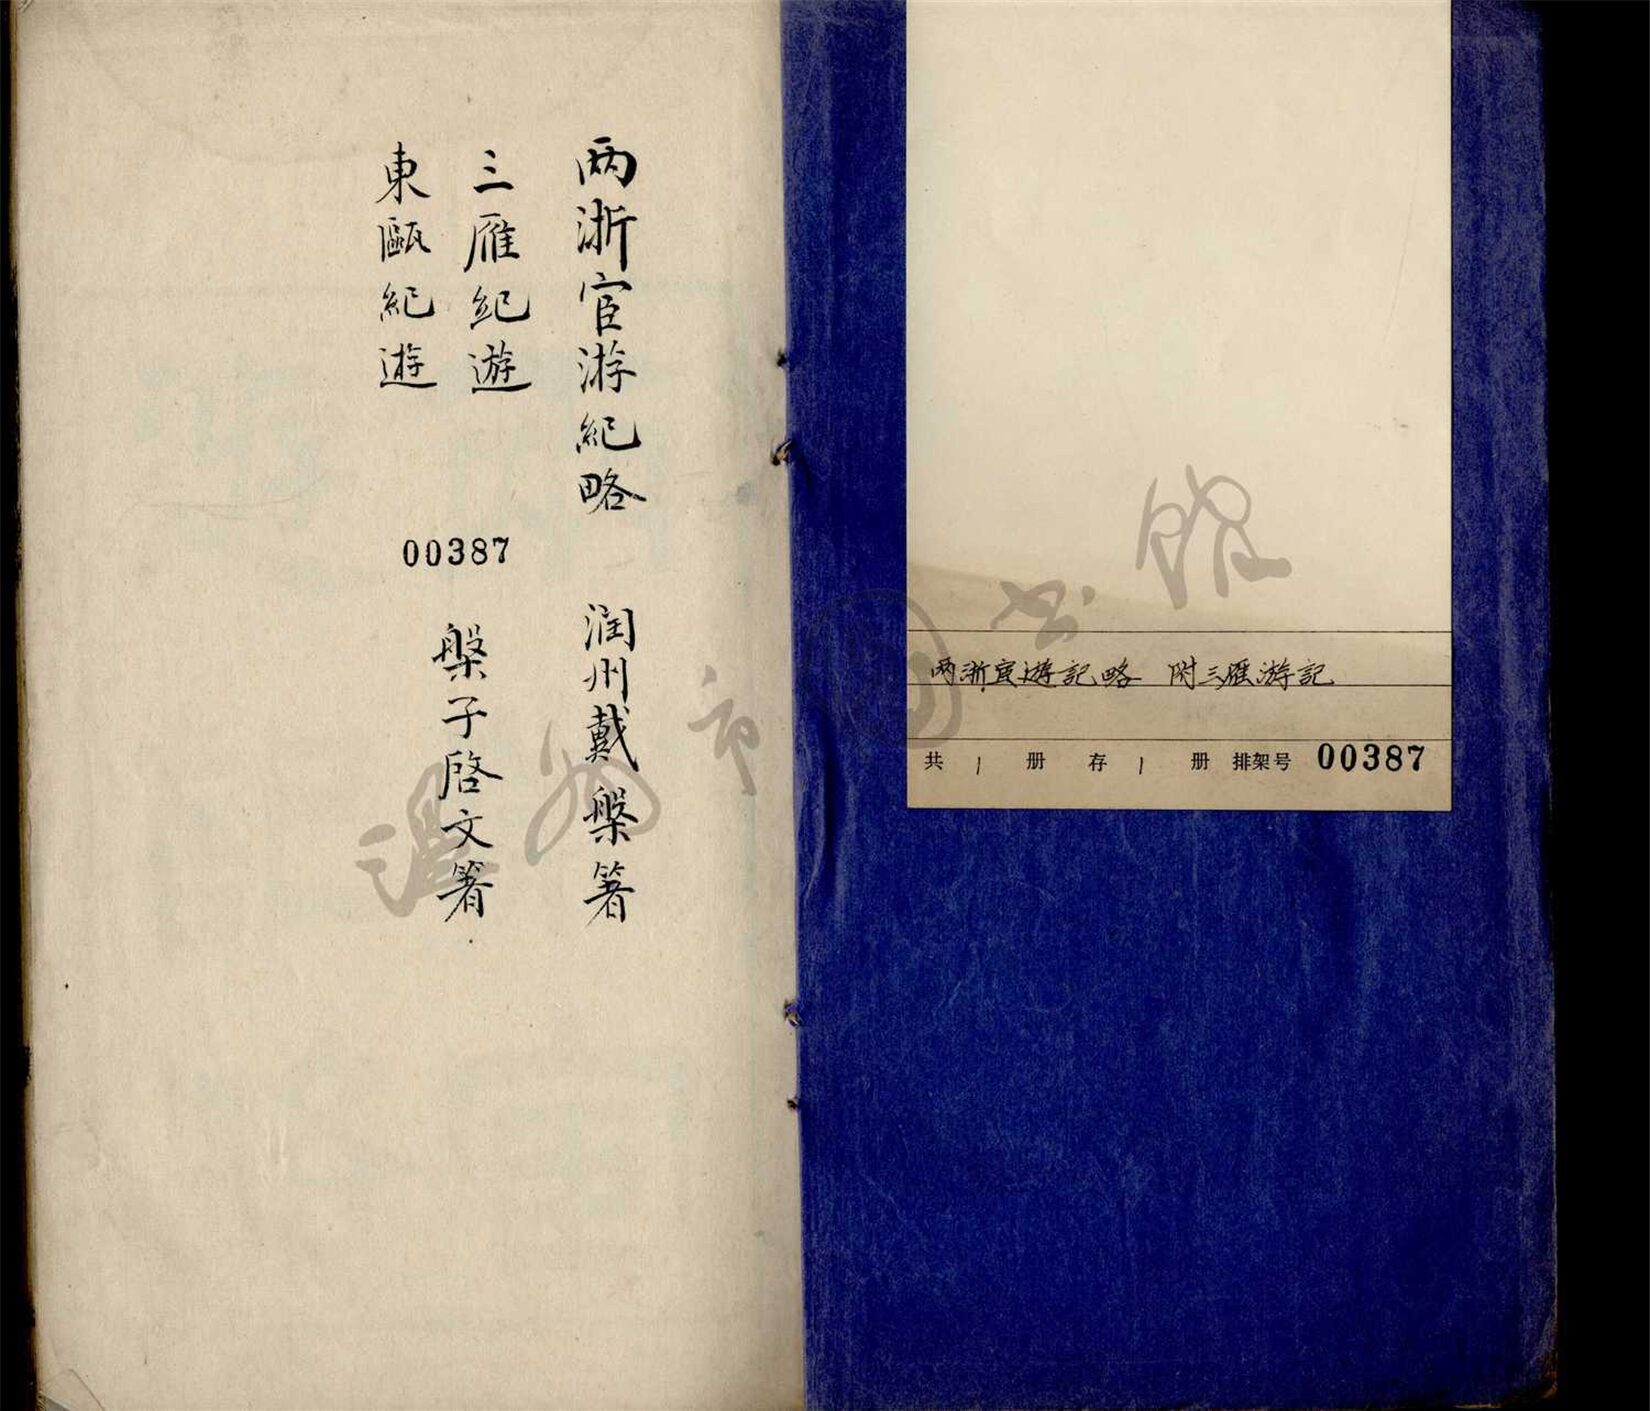 两浙宦遊記略 附三雁游記
共 1 册 存 1 册 排架号 00387
两浙宦游紀略 润州戴槃著
三雁紀遊
東甌紀遊
槃子啓文著
00387
温州市图书馆